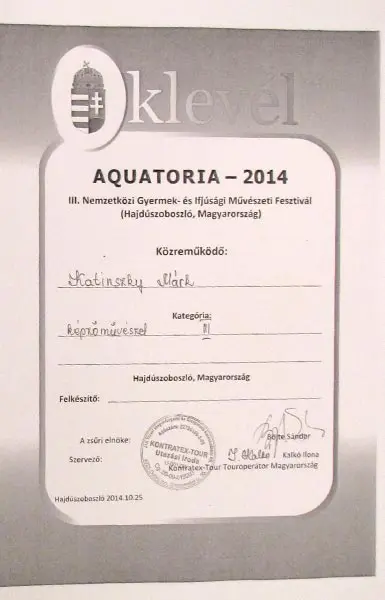 Oklevél
AQUATORIA – 2014
III. Nemzetközi Gyermek- és Ifjúsági Művészeti Fesztivál
(Hajdúszoboszló, Magyarország)
Közreműködő:
Katinszky Márk
Kategória:
képzőművészet III
Hajdúszoboszló, Magyarország
Felkészítő:
A zsűri elnöke: Bőjte Sándor
Szervező: Kalkó Ilona
Kontratex-Tour Touroperátor Magyarország
KONTRATEX-TOUR
Utazási Iroda
Hajdúszoboszló 2014.10.25